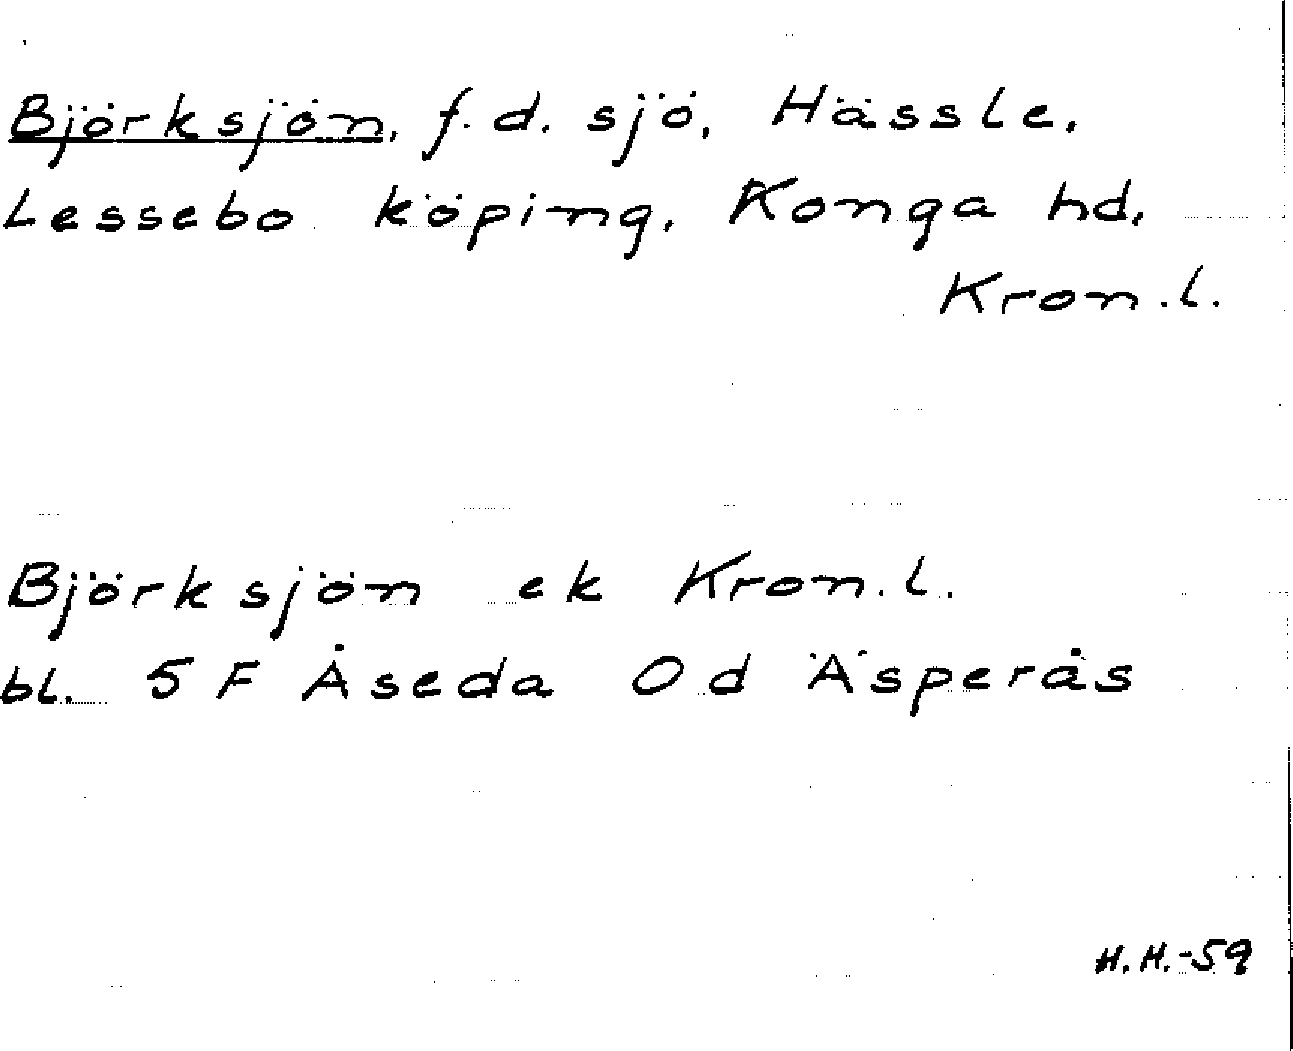 Björksjön, f.d. sjö, Hässle,
Lessebo köping, Konga hd,
Kron.l.
Björksjön ek Kron.l.
bl. 5 F Åseda 0 d Äsperås
H.H.-59